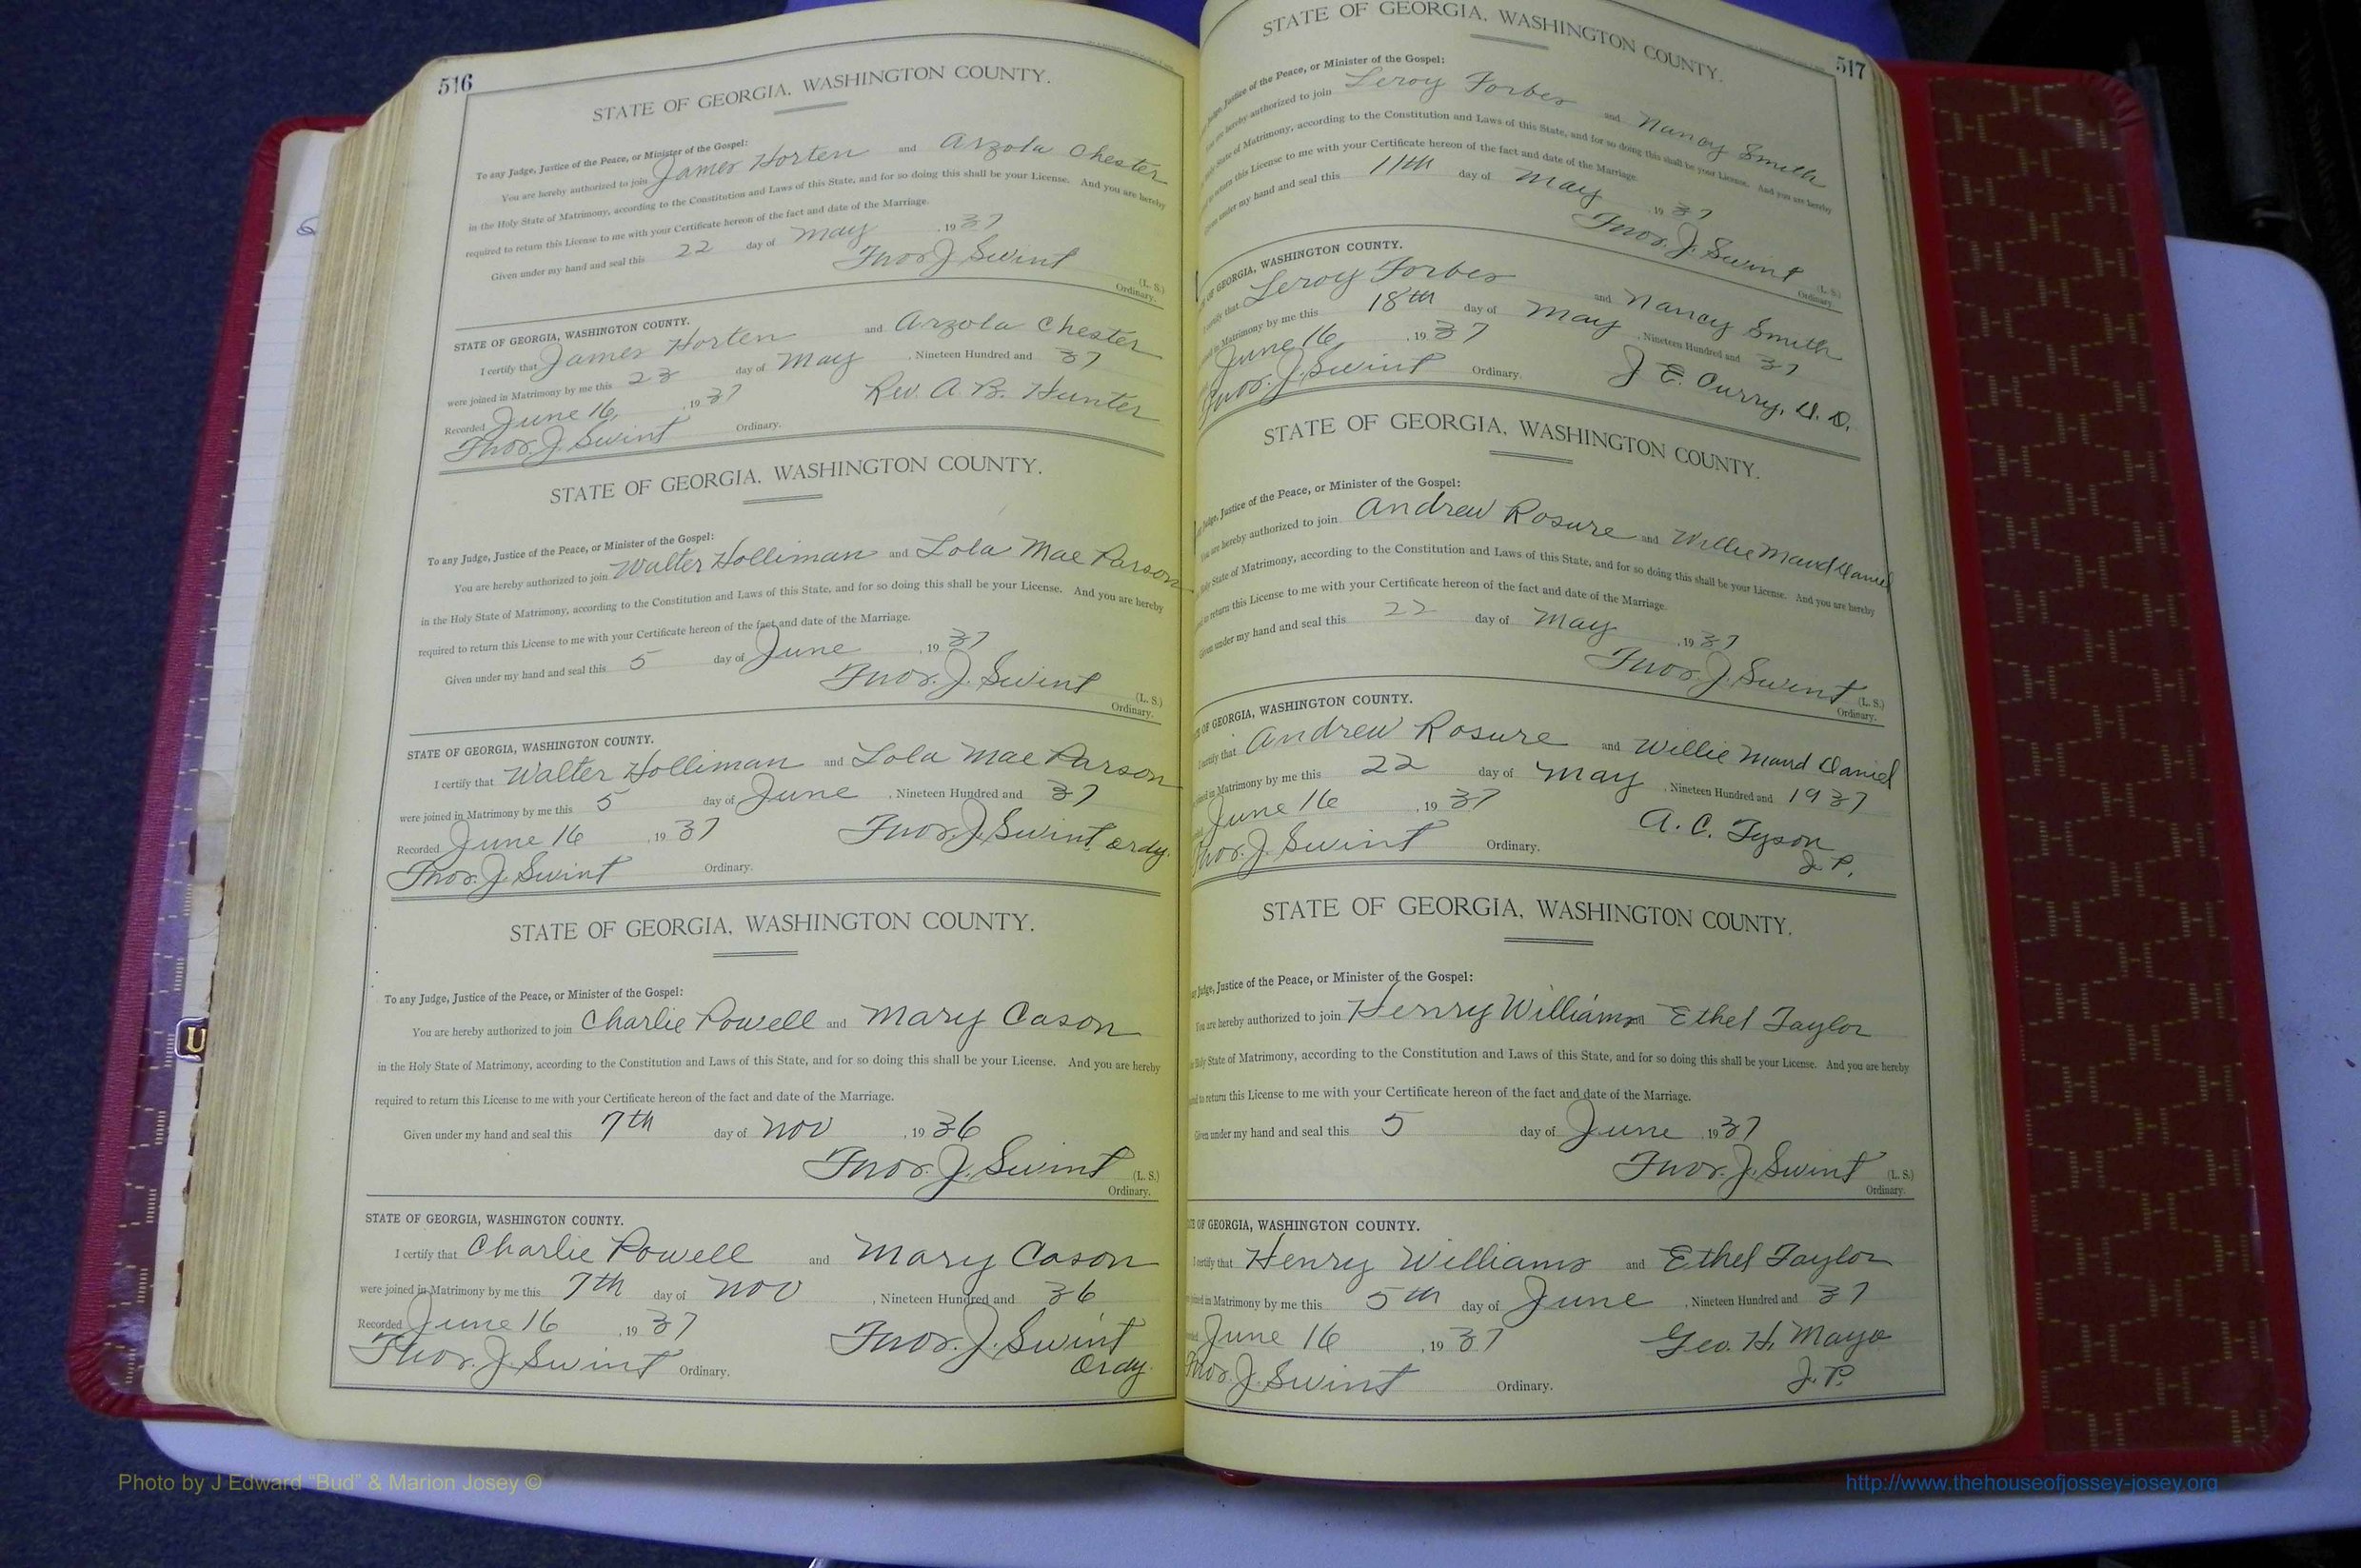 516
STATE OF GEORGIA, WASHINGTON COUNTY.
To any Judge, Justice of the Peace, or Minister of the Gospel:
You are hereby authorized to join James Horten and Arzola Chester
in the Holy State of Matrimony, according to the Constitution and Laws of this State, and for so doing this shall be your License. And you are hereby
required to return this License to me with your Certificate hereon of the fact and date of the Marriage.
Given under my hand and seal this 22 day of May, 1937
Thos. J. Swint (L. S.)
Ordinary.
STATE OF GEORGIA, WASHINGTON COUNTY.
I certify that James Horten and Arzola Chester
were joined in Matrimony by me this 23 day of May, Nineteen Hundred and 37
Recorded June 16, 1937 Rev. A. B. Hunter
Thos. J. Swint Ordinary.
STATE OF GEORGIA, WASHINGTON COUNTY.
To any Judge, Justice of the Peace, or Minister of the Gospel:
You are hereby authorized to join Walter Holliman and Lola Mae Parson
in the Holy State of Matrimony, according to the Constitution and Laws of this State, and for so doing this shall be your License. And you are hereby
required to return this License to me with your Certificate hereon of the fact and date of the Marriage.
Given under my hand and seal this 5 day of June, 1937
Thos. J. Swint (L. S.)
Ordinary.
STATE OF GEORGIA, WASHINGTON COUNTY.
I certify that Walter Holliman and Lola Mae Parson
were joined in Matrimony by me this 5 day of June, Nineteen Hundred and 37
Recorded June 16, 1937 Thos. J. Swint Ordy.
Thos. J. Swint Ordinary.
STATE OF GEORGIA, WASHINGTON COUNTY.
To any Judge, Justice of the Peace, or Minister of the Gospel:
You are hereby authorized to join Charlie Powell and Mary Cason
in the Holy State of Matrimony, according to the Constitution and Laws of this State, and for so doing this shall be your License. And you are hereby
required to return this License to me with your Certificate hereon of the fact and date of the Marriage.
Given under my hand and seal this 7th day of Nov, 1936
Thos. J. Swint (L. S.)
Ordinary.
STATE OF GEORGIA, WASHINGTON COUNTY.
I certify that Charlie Powell and Mary Cason
were joined in Matrimony by me this 7th day of Nov, Nineteen Hundred and 36
Recorded June 16, 1937 Thos. J. Swint
Thos. J. Swint Ordinary. Ordy.
517
STATE OF GEORGIA, WASHINGTON COUNTY.
Judge, Justice of the Peace, or Minister of the Gospel:
You are hereby authorized to join Leroy Forbes and Nancy Smith
State of Matrimony, according to the Constitution and Laws of this State, and for so doing this shall be your License. And you are hereby
return this License to me with your Certificate hereon of the fact and date of the Marriage.
Given under my hand and seal this 11th day of May, 1937
Thos. J. Swint (L. S.)
Ordinary.
OF GEORGIA, WASHINGTON COUNTY.
I certify that Leroy Forbes and Nancy Smith
in Matrimony by me this 18th day of May, Nineteen Hundred and 37
June 16, 1937 J. E. Curry, D. D.
Thos. J. Swint Ordinary.
STATE OF GEORGIA, WASHINGTON COUNTY.
Judge, Justice of the Peace, or Minister of the Gospel:
You are hereby authorized to join Andrew Rosure and Willie Maud Daniel
State of Matrimony, according to the Constitution and Laws of this State, and for so doing this shall be your License. And you are hereby
return this License to me with your Certificate hereon of the fact and date of the Marriage.
Given under my hand and seal this 22 day of May, 1937
Thos. J. Swint (L. S.)
Ordinary.
OF GEORGIA, WASHINGTON COUNTY.
certify that Andrew Rosure and Willie Maud Daniel
in Matrimony by me this 22 day of May, Nineteen Hundred and 1937
June 16, 1937 A. C. Tyson
Thos. J. Swint Ordinary. J. P.
STATE OF GEORGIA, WASHINGTON COUNTY.
Judge, Justice of the Peace, or Minister of the Gospel:
You are hereby authorized to join Henry Williams and Ethel Taylor
Holy State of Matrimony, according to the Constitution and Laws of this State, and for so doing this shall be your License. And you are hereby
to return this License to me with your Certificate hereon of the fact and date of the Marriage.
Given under my hand and seal this 5 day of June, 1937
Thos. J. Swint (L. S.)
Ordinary.
OF GEORGIA, WASHINGTON COUNTY.
I certify that Henry Williams and Ethel Taylor
joined in Matrimony by me this 5th day of June, Nineteen Hundred and 37
June 16, 1937 Geo. H. Mayo
Thos. J. Swint Ordinary. J. P.
U
Photo by J Edward “Bud” & Marion Josey ©
http://www.thehouseofjossey-josey.org